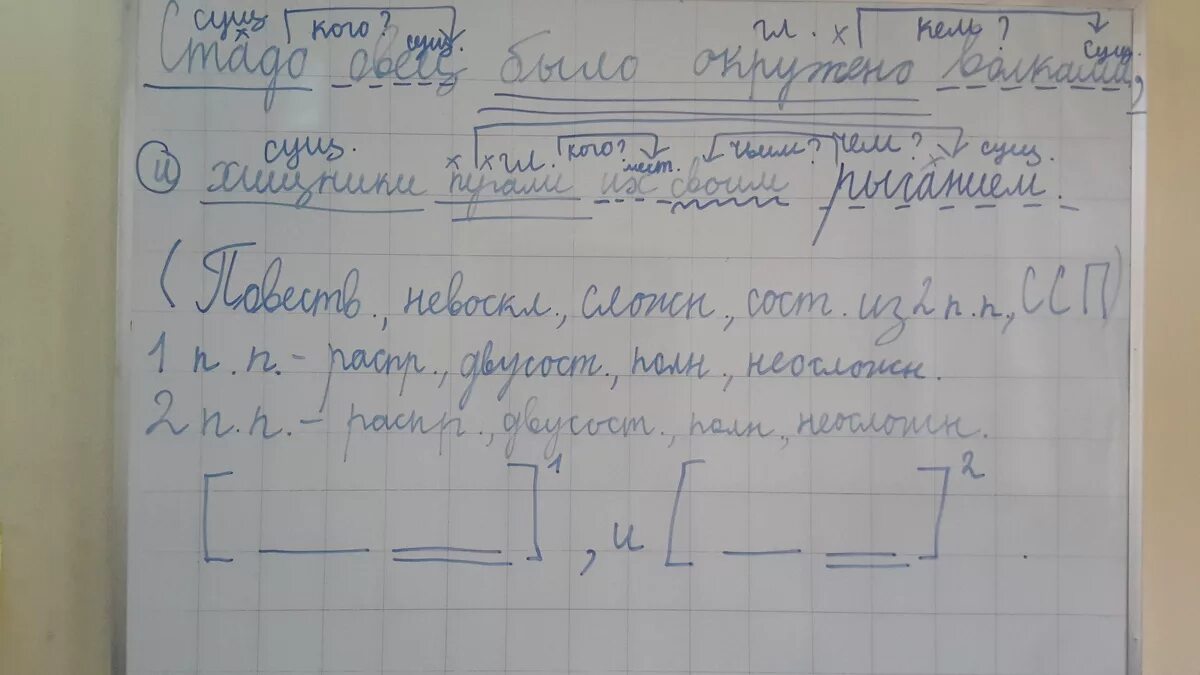 сущ кого? сущ. гл. х кем? сущ.
Стадо овец было окружено волками,
сущ. х х гл. кого? мест. чьим? чем? х сущ.
и хищники пугали их своим рыганием.
(Повеств., невоскл., сложн., сост. из 2 п.п., ССП)
1 п.п. - распр., двусост., полн., неосложн.
2 п.п. - распр., двусост., полн., неосложн.
[ ]1, и [ ]2 .